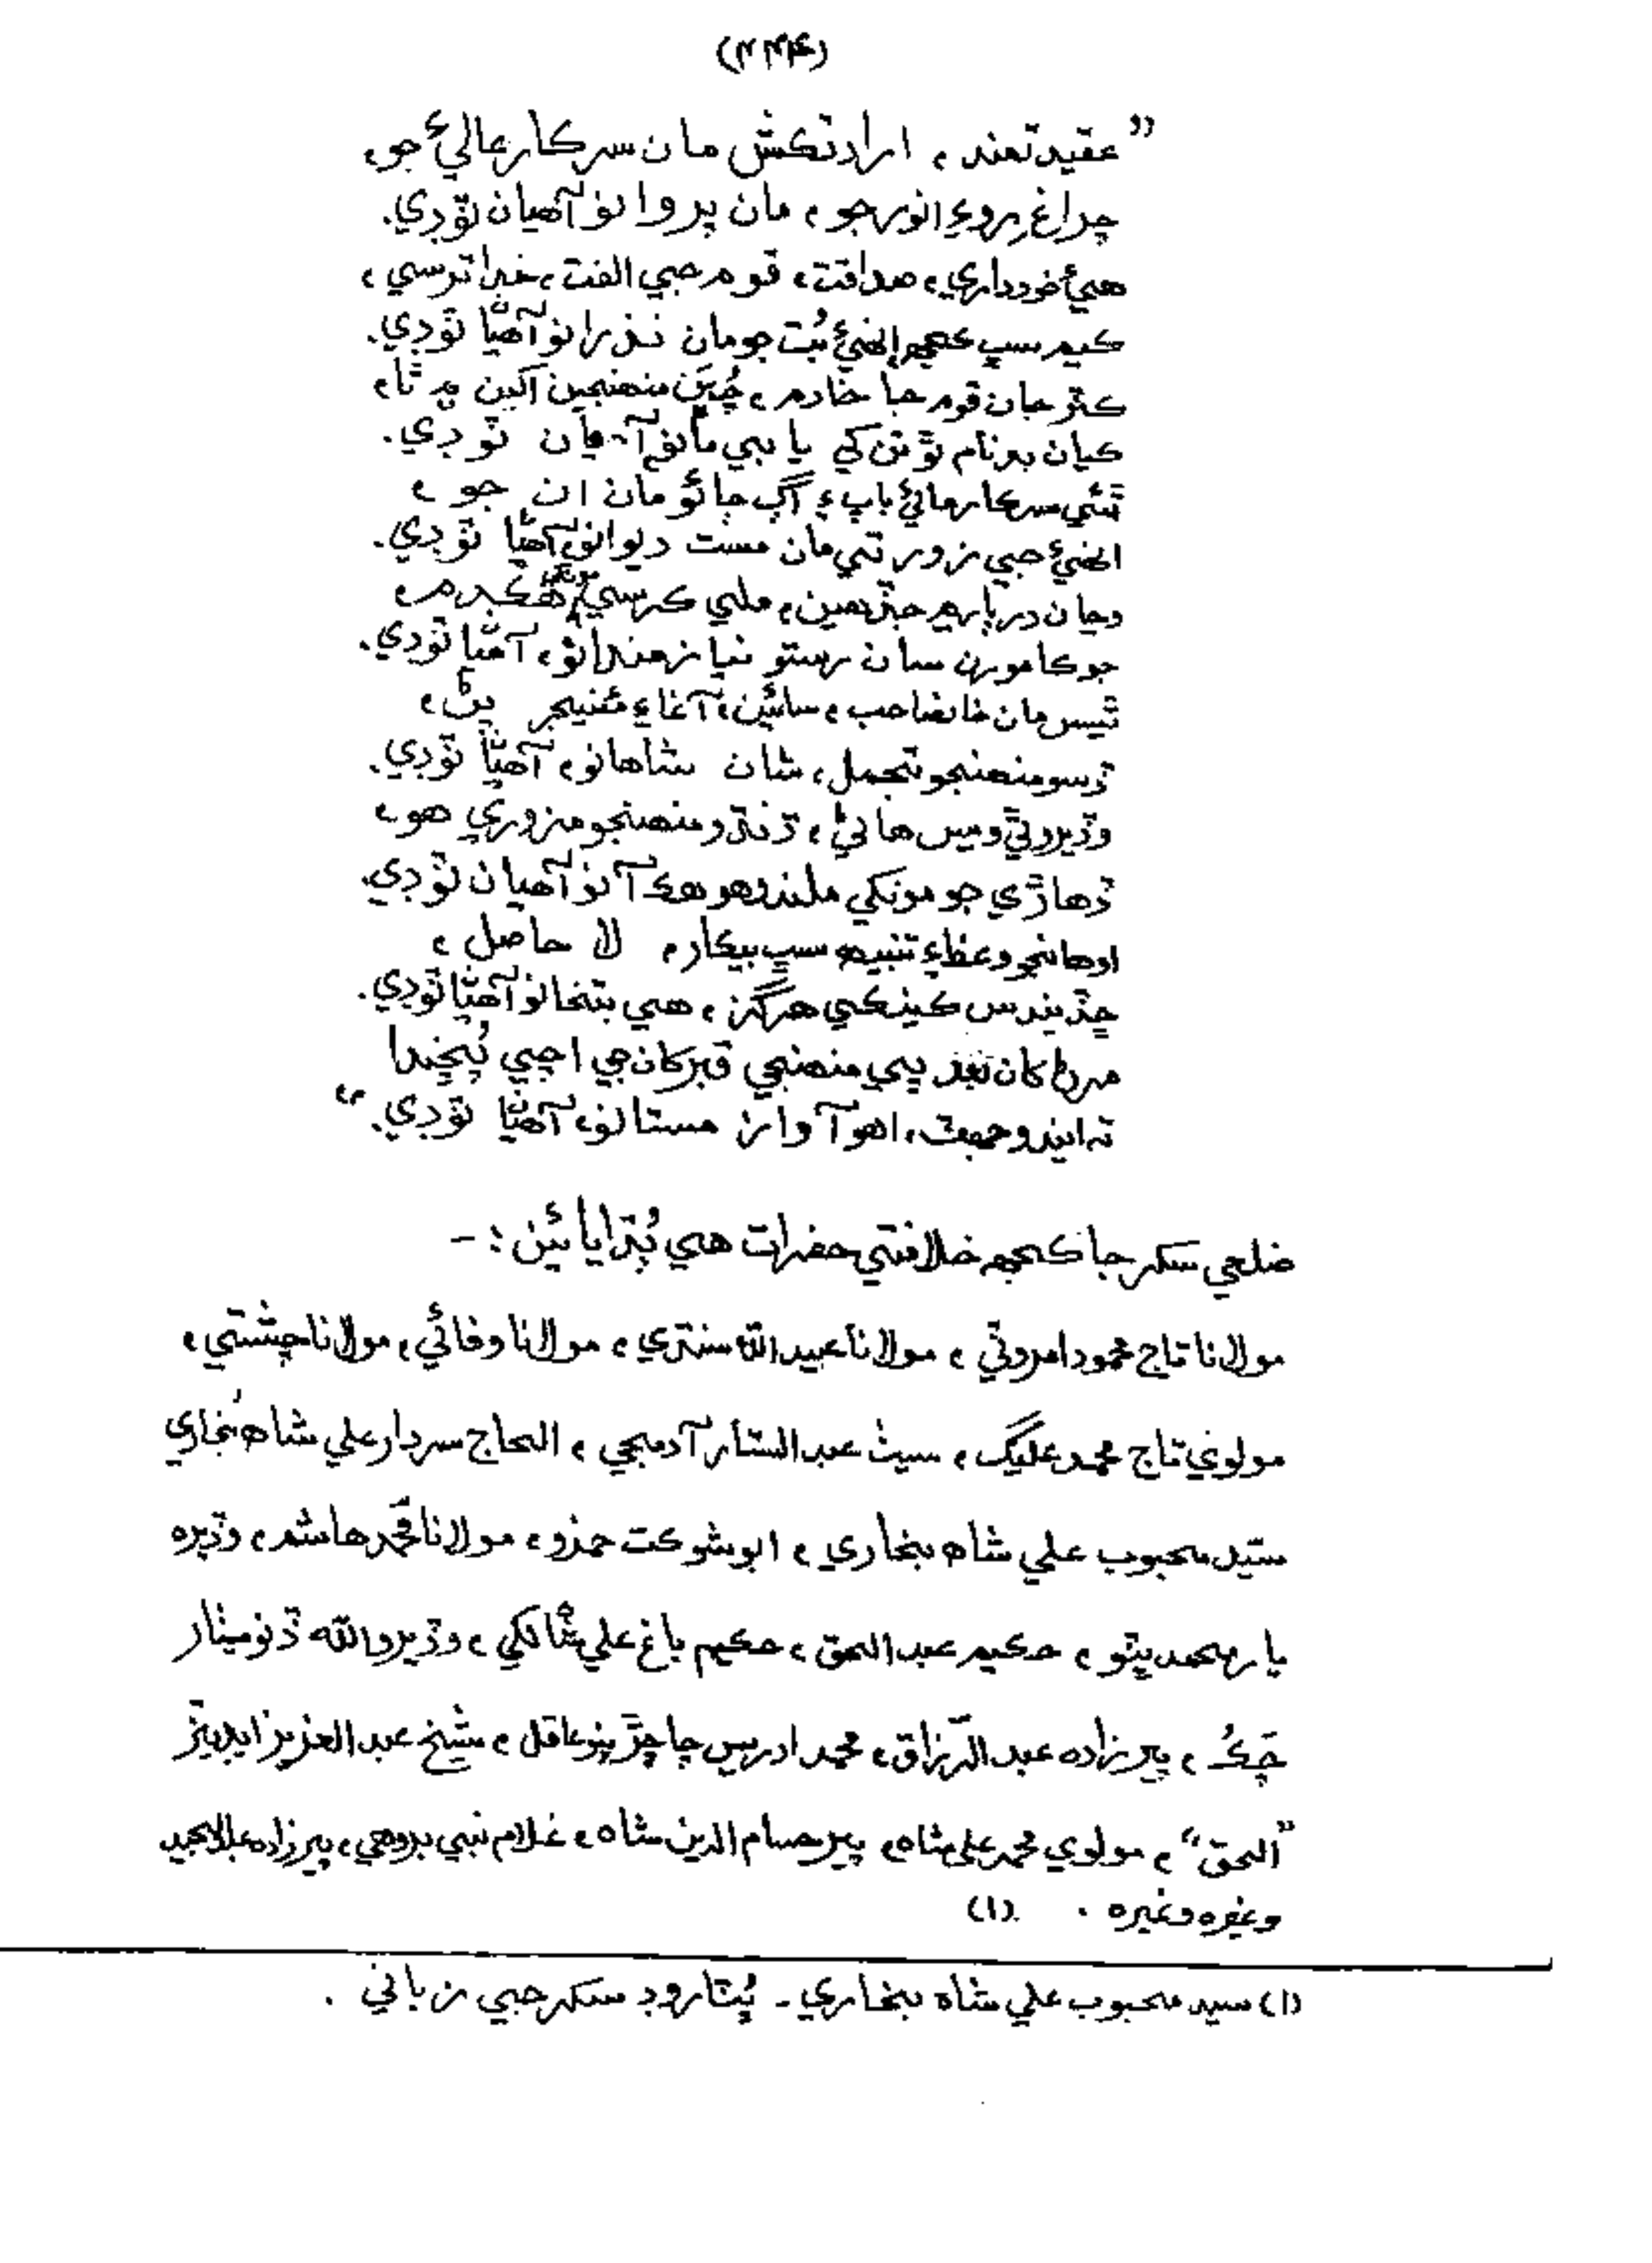 (۲۴۴)
”عقيدتمند، ارادتڪش مان سرڪار عاليءَ جو،
چراغِ روءِ انور جو، مان پروانو آهيان ٽوڊي.
هيءَ خودداري، صداقت، قوم جي الفت، خدا ترسي،
ڪيم سڀ ڪجهه انهيءَ بُت جو مان نذرانو آهيان ٽوڊي.
ڪٿر جان قوم جا خادم، چُڀن منهنجين اکين ۾ ٿا،
ڪيان بدنام ٿو تن کي يا ٻي آهيان ٽوڊي.
ٿئي سرڪار مائي باپ ۽ آڳ ڄائو مان ان جو،
انهيءَ جي زور تي مان مست ديوانو آهيان ٽوڊي.
وڃان درٻار ۾ جڏهين، ملي ڪرسي هڪدم،
جو ڪامورن سان رستو نيازمندانو، آهيان ٽوڊي.
ٿيس مان خانصاحب، سائين، آغا ۽ مئنيجر پڻ،
ڏسو منهنجو تجمل، شان شاهانو، آهيان ٽوڊي.
وڏيرو ٿي ويس هاڻي، ڌنڌو منهنجو مزوري هو،
ڏهاڙي جو مونکي ملندو هو هڪ آنو آهيان ٽوڊي.
اوهانجو وعظ ۽ تنبيهه سڀ بيڪار، لا حاصل،
ڇڏيندس ڪينڪي هرگز، هي بتخانو آهيان ٽوڊي.
مرڻ کان بعد پي منهنجي قبر کان جي اچي پُڇندا
ته ايندو جهٽ، اهو آواز مستانو، آهيان ٽوڊي.“
ضلعي سکر جا ڪجهه خلافتي حضرات هي ٻُڌايائين:-
مولانا تاج محمود امروٽي، مولانا عبيدالله سنڌي، مولانا وفائي، مولانا چشتي،
مولوي تاج محمد عليگ، سيٺ عبدالستار آدمجي، الحاج سردار علي شاهه بخاري
سيد محبوب علي شاهه بخاري، ابو شوڪت حمزو، مولانا محمد هاشم، وڏيره
يار محمد پتو، حڪيم عبدالحق، حڪيم باغ علي شالڪي، وڏيرو الله ڏنو مينار
چڪ، پيرزاده عبدالرزاق، محمد ادريس چاچڙ پنوعاقل، شيخ عبدالعزيز ايڊيٽر
”الحق“، مولوي محمد علي شاهه، پير حسام الدين شاهه، غلام نبي بروهي، پيرزاده عبدالمجيد
وغيره وغيره. (۱)
(۱) سيد محبوب علي شاهه بخاري - سکر جي زباني.